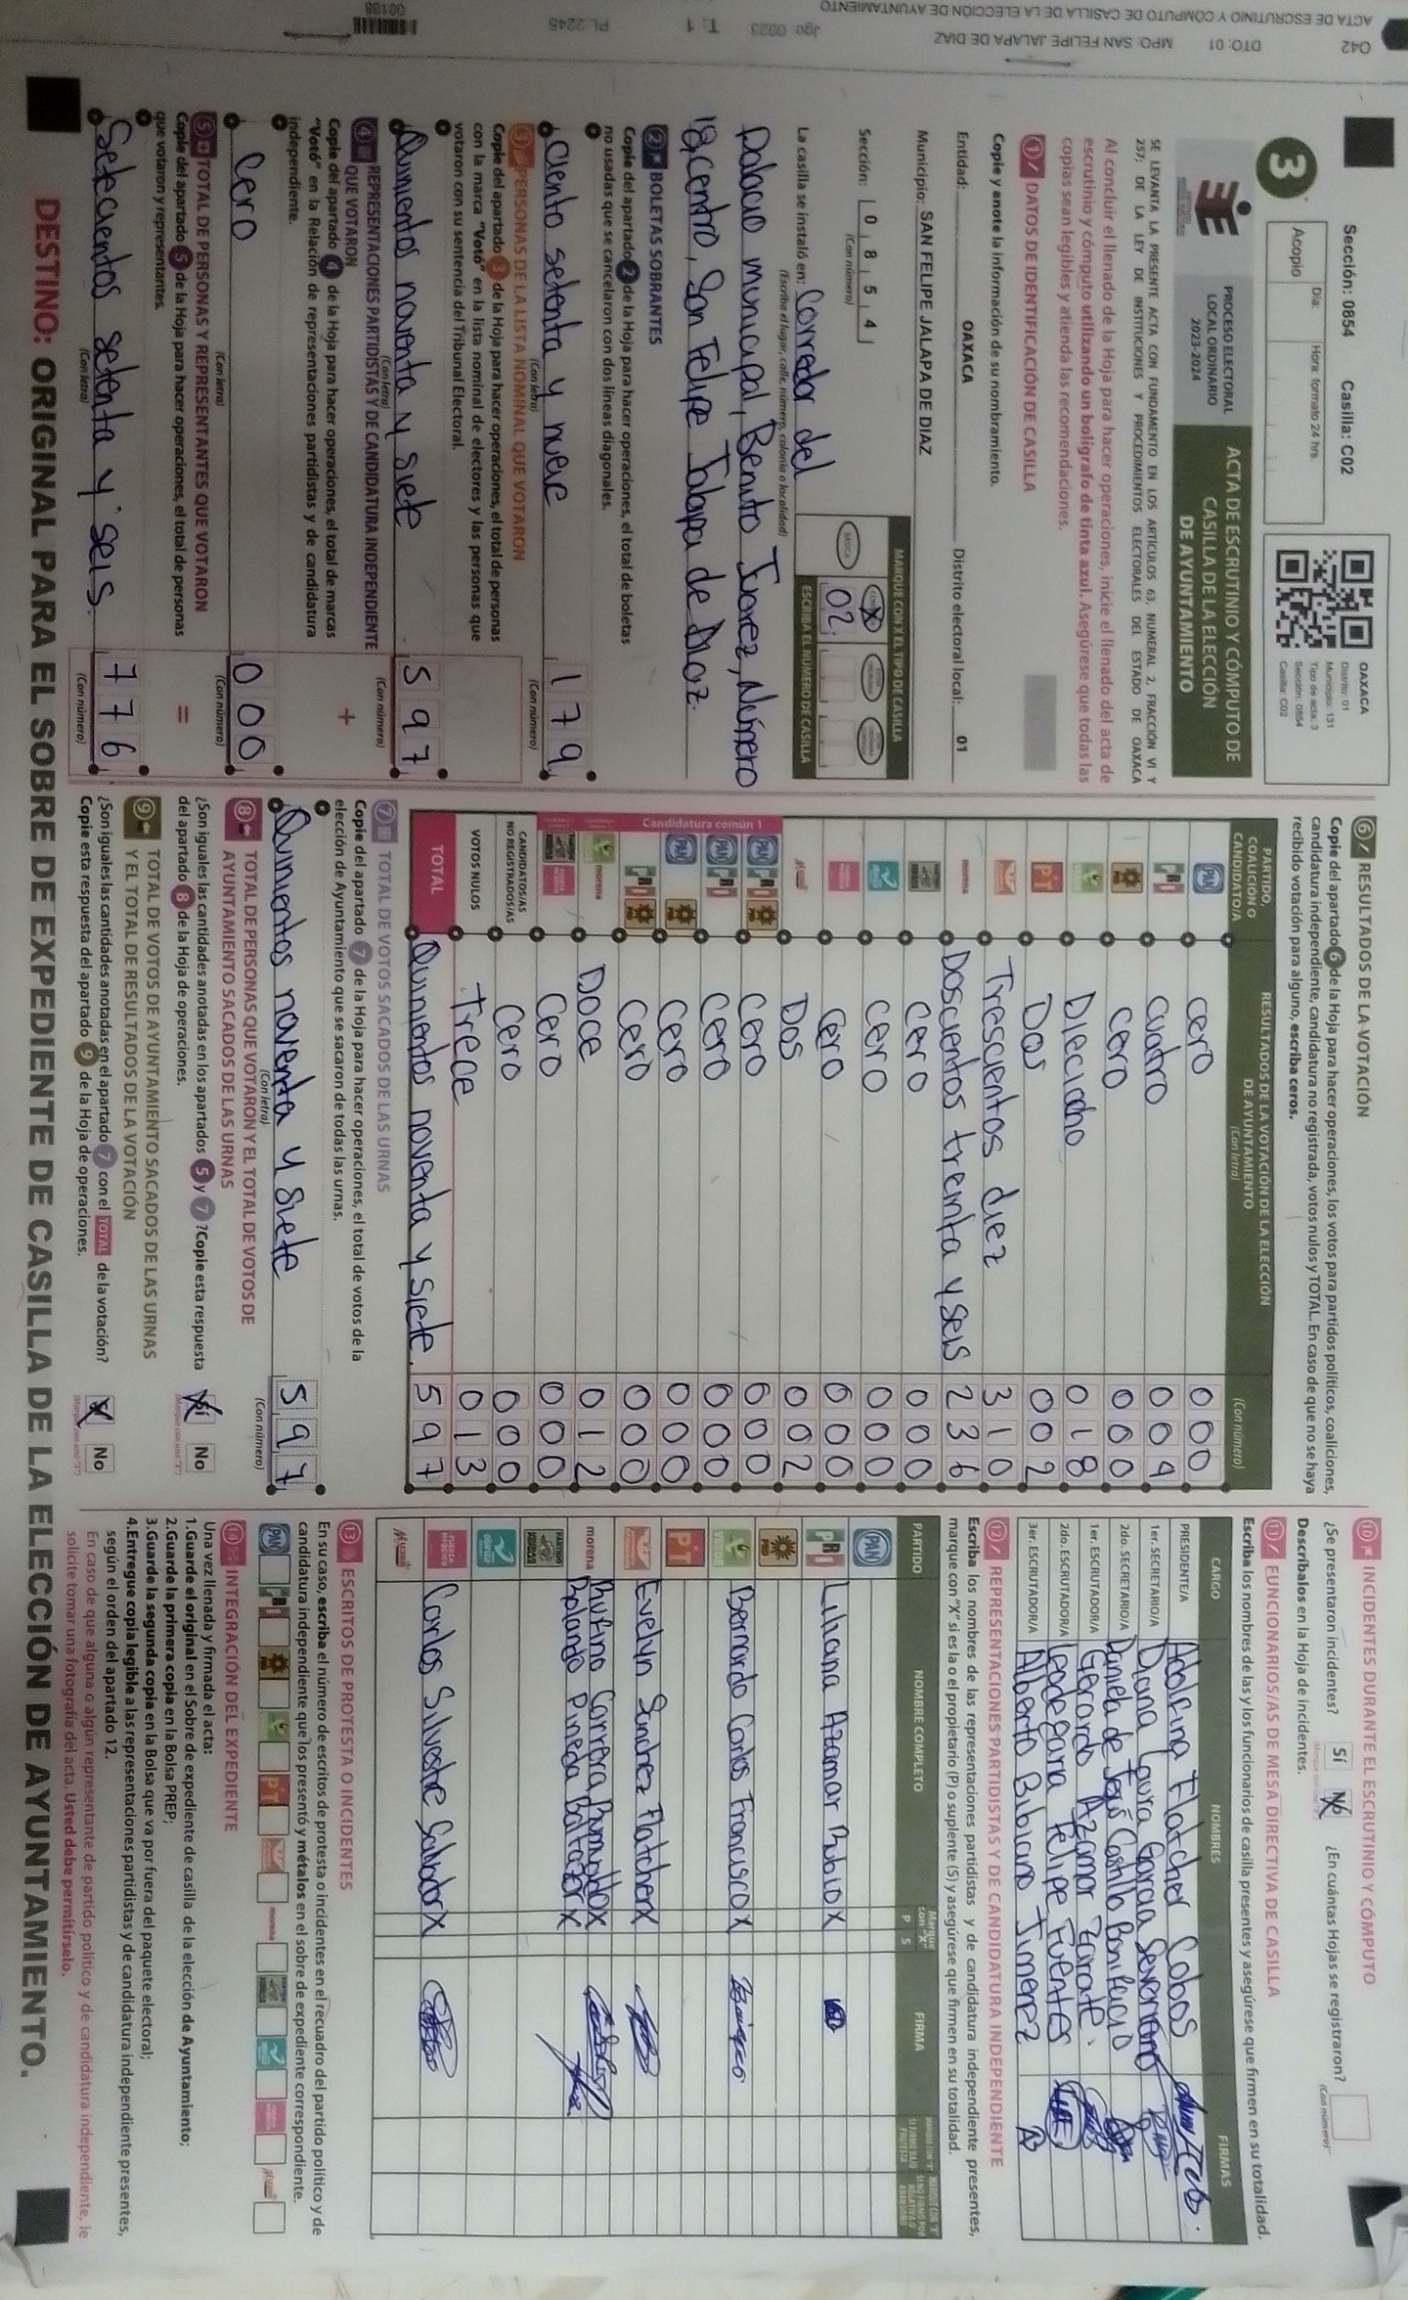 042 DTO: 01 MPO: SAN FELIPE JALAPA DE DIAZ Jgo: 0023 T: 1 PL:2245 00188
ACTA DE ESCRUTINIO Y CÓMPUTO DE CASILLA DE LA ELECCIÓN DE AYUNTAMIENTO
Sección: 0854 Casilla: C02
Día: Hora: formato 24 hrs.
Acopio
OAXACA
Distrito: 01
Municipio: 131
Tipo de acta: 3
Sección: 0854
Casilla: C02
3
PROCESO ELECTORAL
LOCAL ORDINARIO
2023-2024
ACTA DE ESCRUTINIO Y CÓMPUTO DE
CASILLA DE LA ELECCIÓN
DE AYUNTAMIENTO
SE LEVANTA LA PRESENTE ACTA CON FUNDAMENTO EN LOS ARTÍCULOS 63, NUMERAL 2, FRACCIÓN VI Y
257; DE LA LEY DE INSTITUCIONES Y PROCEDIMIENTOS ELECTORALES DEL ESTADO DE OAXACA
Al concluir el llenado de la Hoja para hacer operaciones, inicie el llenado del acta de
escrutinio y cómputo utilizando un bolígrafo de tinta azul. Asegúrese que todas las
copias sean legibles y atienda las recomendaciones.
1 DATOS DE IDENTIFICACIÓN DE CASILLA
Copie y anote la información de su nombramiento.
Entidad: OAXACA Distrito electoral local: 01
Municipio: SAN FELIPE JALAPA DE DIAZ
Sección: 0 8 5 4
(Con número)
MARQUE CON X EL TIPO DE CASILLA
BÁSICA
X
02
ESCRIBA EL NÚMERO DE CASILLA
La casilla se instaló en: Corredor del
(Escriba el lugar, calle, número, colonia o localidad)
Palacio municipal, Benito Juarez, Número
18, centro, San Felipe Jalapa de Díaz.
2 BOLETAS SOBRANTES
Copie del apartado 2 de la Hoja para hacer operaciones, el total de boletas
no usadas que se cancelaron con dos líneas diagonales.
Ciento setenta y nueve 1 7 9
(Con letra) (Con número)
3 PERSONAS DE LA LISTA NOMINAL QUE VOTARON
Copie del apartado 3 de la Hoja para hacer operaciones, el total de personas
con la marca "Votó" en la lista nominal de electores y las personas que
votaron con su sentencia del Tribunal Electoral.
Quinientos noventa y siete 5 9 7
(Con letra) (Con número)
4 REPRESENTACIONES PARTIDISTAS Y DE CANDIDATURA INDEPENDIENTE
QUE VOTARON
Copie del apartado 4 de la Hoja para hacer operaciones, el total de marcas
"Votó" en la Relación de representaciones partidistas y de candidatura
independiente.
+
Cero 0 0 0
(Con letra) (Con número)
5 TOTAL DE PERSONAS Y REPRESENTANTES QUE VOTARON
Copie del apartado 5 de la Hoja para hacer operaciones, el total de personas
que votaron y representantes.
=
Setecientos setenta y seis. 7 7 6
(Con letra) (Con número)
6 RESULTADOS DE LA VOTACIÓN
Copie del apartado 6 de la Hoja para hacer operaciones, los votos para partidos políticos, coaliciones,
candidatura independiente, candidatura no registrada, votos nulos y TOTAL. En caso de que no se haya
recibido votación para alguno, escriba ceros.
PARTIDO,
COALICIÓN O
CANDIDATO/A
RESULTADOS DE LA VOTACIÓN DE LA ELECCIÓN
DE AYUNTAMIENTO
(Con letra) (Con número)
PAN cero 0 0 0
PRI cuatro 0 0 4
PRD cero 0 0 0
VERDE Dieciocho 0 1 8
PT Dos 0 0 2
Trescientos diez 3 1 0
morena Doscientos treinta y seis 2 3 6
cero 0 0 0
cero 0 0 0
cero 0 0 0
Dos 0 0 2
Candidatura común 1
PAN PRI PRD cero 0 0 0
PAN PRI cero 0 0 0
PAN PRD cero 0 0 0
PRI PRD cero 0 0 0
morena Doce 0 1 2
cero 0 0 0
CANDIDATOS/AS
NO REGISTRADOS/AS cero 0 0 0
VOTOS NULOS Trece 0 1 3
TOTAL Quinientos noventa y siete. 5 9 7
7 TOTAL DE VOTOS SACADOS DE LAS URNAS
Copie del apartado 7 de la Hoja para hacer operaciones, el total de votos de la
elección de Ayuntamiento que se sacaron de todas las urnas.
Quinientos noventa y siete 5 9 7
(Con letra) (Con número)
8 TOTAL DE PERSONAS QUE VOTARON Y EL TOTAL DE VOTOS DE
AYUNTAMIENTO SACADOS DE LAS URNAS
¿Son iguales las cantidades anotadas en los apartados 5 y 7 ? Copie esta respuesta
del apartado 8 de la Hoja de operaciones.
Sí No
9 TOTAL DE VOTOS DE AYUNTAMIENTO SACADOS DE LAS URNAS
Y EL TOTAL DE RESULTADOS DE LA VOTACIÓN
¿Son iguales las cantidades anotadas en el apartado 7 con el TOTAL de la votación?
Copie esta respuesta del apartado 9 de la Hoja de operaciones.
No
10 INCIDENTES DURANTE EL ESCRUTINIO Y CÓMPUTO
¿Se presentaron incidentes? Sí No ¿En cuántas Hojas se registraron?
(Con número)
Descríbalos en la Hoja de incidentes.
11 FUNCIONARIOS/AS DE MESA DIRECTIVA DE CASILLA
Escriba los nombres de las y los funcionarios de casilla presentes y asegúrese que firmen en su totalidad.
CARGO NOMBRES FIRMAS
PRESIDENTE/A Adolfina Flatcher Cobos
1er. SECRETARIO/A Diana Laura Garcia Severiano
2do. SECRETARIO/A Daniela de Jesú Castillo Bonifacio
1er. ESCRUTADOR/A Gerardo Azamar Zarate.
2do. ESCRUTADOR/A Leodegaria Felipe Fuentes
3er. ESCRUTADOR/A Alberto Bibiano Jimenez
12 REPRESENTACIONES PARTIDISTAS Y DE CANDIDATURA INDEPENDIENTE
Escriba los nombres de las representaciones partidistas y de candidatura independiente presentes,
marque con "X" si es la o el propietario (P) o suplente (S) y asegúrese que firmen en su totalidad.
PARTIDO NOMBRE COMPLETO Marque con "X" P S FIRMA
PAN
PRI Liliana Azamar Rubio X
PRD
VERDE Bernardo Carlos Francisco X
PT
Evelyn Sanchez Flatcher X
morena Rufino Carrera X
Rolando Pineda Baltazar X
Carlos Silvestre Salvador X
13 ESCRITOS DE PROTESTA O INCIDENTES
En su caso, escriba el número de escritos de protesta o incidentes en el recuadro del partido político y de
candidatura independiente que los presentó y métalos en el sobre de expediente correspondiente.
PAN PRI PRD VERDE PT morena
14 INTEGRACIÓN DEL EXPEDIENTE
Una vez llenada y firmada el acta:
1.Guarde el original en el Sobre de expediente de casilla de la elección de Ayuntamiento;
2.Guarde la primera copia en la Bolsa PREP;
3.Guarde la segunda copia en la Bolsa que va por fuera del paquete electoral;
4.Entregue copia legible a las representaciones partidistas y de candidatura independiente presentes,
según el orden del apartado 12.
En caso de que alguna o algún representante de partido político y de candidatura independiente, le
solicite tomar una fotografía del acta. Usted debe permitírselo.
DESTINO: ORIGINAL PARA EL SOBRE DE EXPEDIENTE DE CASILLA DE LA ELECCIÓN DE AYUNTAMIENTO.